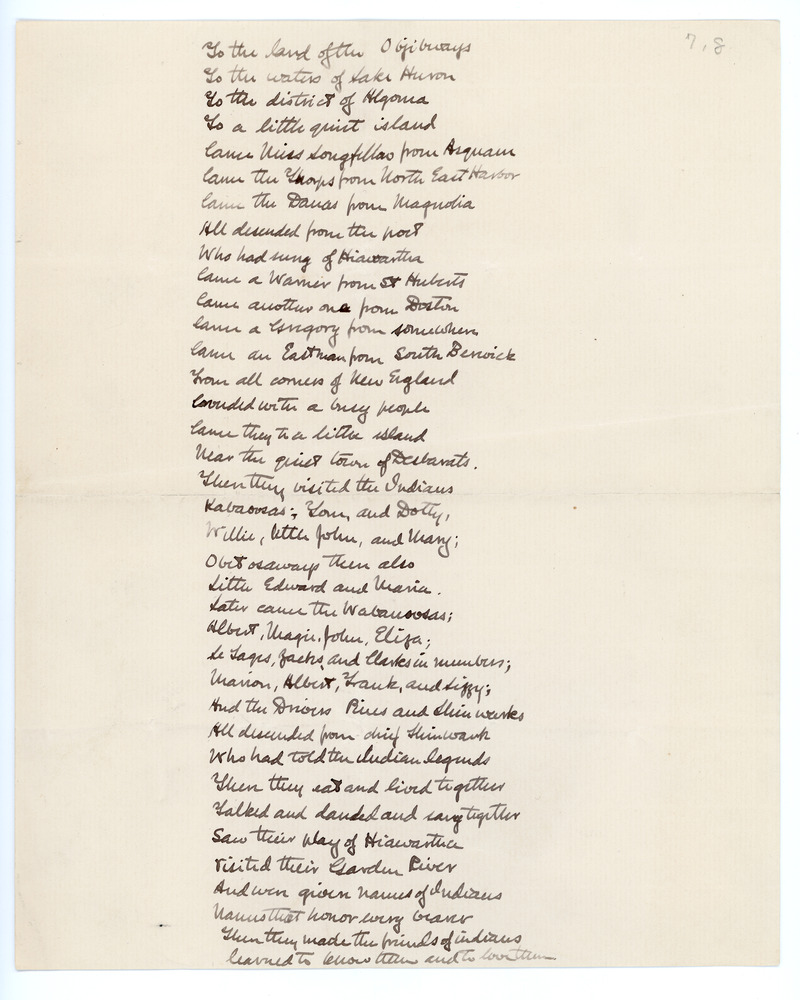 7, 8
To the land of the Ojibways
To the waters of Lake Huron
To the district of Algoma
To a little quiet island
Came Miss Longfellow from Asquam
Came the Thorps from North East Harbor
Came the Danas from Magnolia
All descended from the poet
Who had sung of Hiawartha
Came a Warner from St Huberts
Came another one from Boston
Came a Gregory from somewhere
Came an Eastman from South Berwick
From all corners of New England
Crowded with a busy people
Came they to a little island
Near the quiet town of Desbarats.
Then they visited the Indians
Kabaoosas; Tom, and Dotty,
Willie, little John, and Mary;
Obetosaways then also
Little Edward and Maria.
Later came the Wabanoosas;
Albert, Magie, John, Eliza;
Le Sages, Zacks, and Clarks in numbers;
Marion, Albert, Frank, and Lizzy;
And the Drivers Pines and Shinwarks
All descended from chief Shinwauk
Who had told the Indian legends
Then they eat and lived together
Talked and danced and sang together
Saw their play of Hiawartha
Visited their Garden River
And were given names of Indians
Names that honor every bearer
Then they made the friends of indians
learned to know them and to love them